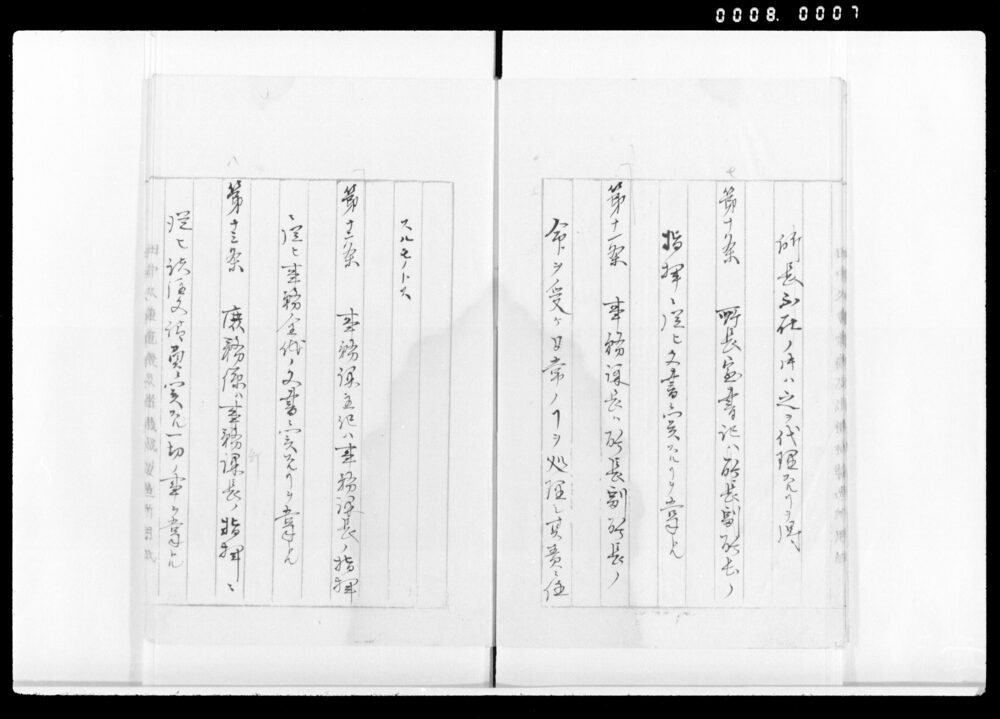 0008. 0007
所長不在ノ時ハ之ヲ代理スルヿヲ得
七
第十条 所長室書記ハ所長副所長ノ
指揮ニ従ヒ文書ニ関スルヿヲ掌ル
第十一条 事務課長ハ所長副所長ノ
命ヲ受ケ日常ノヿヲ処理シ其責ニ任
スルモノトス
第十二条 事務課主記ハ事務課長ノ指揮
ニ従ヒ事務全代ノ文書ニ関スルヿヲ掌ル
八
第十三条 庶務係ハ事務課長ノ指揮ニ
従ヒ 関スル一切ノ事ヲ掌ル